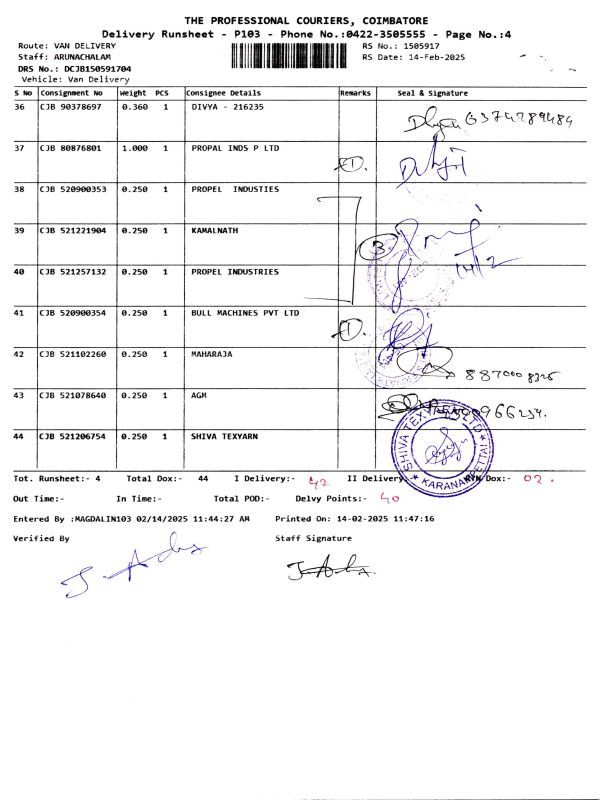 THE PROFESSIONAL COURIERS, COIMBATORE
Delivery Runsheet - P103 - Phone No.:0422-3505555 - Page No.:4
Route: VAN DELIVERY
RS No.: 1505917
Staff: ARUNACHALAM
RS Date: 14-Feb-2025
DRS No.: DCJB150591704
Vehicle: Van Delivery
S No Consignment No Weight PCS Consignee Details Remarks Seal & Signature
36 CJB 90378697 0.360 1 DIVYA - 216235
37 CJB 80876801 1.000 1 PROPAL INDS P LTD 1.
38 CJB 520900353 0.250 1 PROPEL INDUSTIES
39 CJB 521221904 0.250 1 KAMALNATH 3
40 CJB 521257132 0.250 1 PROPEL INDUSTRIES 14/2
41 CJB 520900354 0.250 1 BULL MACHINES PVT LTD 1.
42 CJB 521102260 0.250 1 MAHARAJA
43 CJB 521078640 0.250 1 AGM
44 CJB 521206754 0.250 1 SHIVA TEXYARN
SHIVA TEXYARN LTD
Tot. Runsheet:- 4 Total Dox:- 44 I Delivery:- 42 II Delivery Dox:- 02.
Out Time:- In Time:- Total POD:- Delvy Points:- 40
Entered By :MAGDALIN103 02/14/2025 11:44:27 AM Printed On: 14-02-2025 11:47:16
Verified By Staff Signature